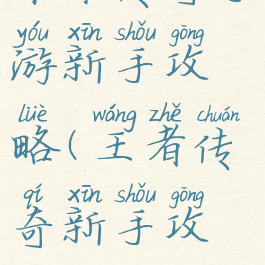 yóu xīn shǒu gōng
游新手攻
lüè wáng zhě chuán
略(王者传
qí xīn shǒu gōng
奇新手攻